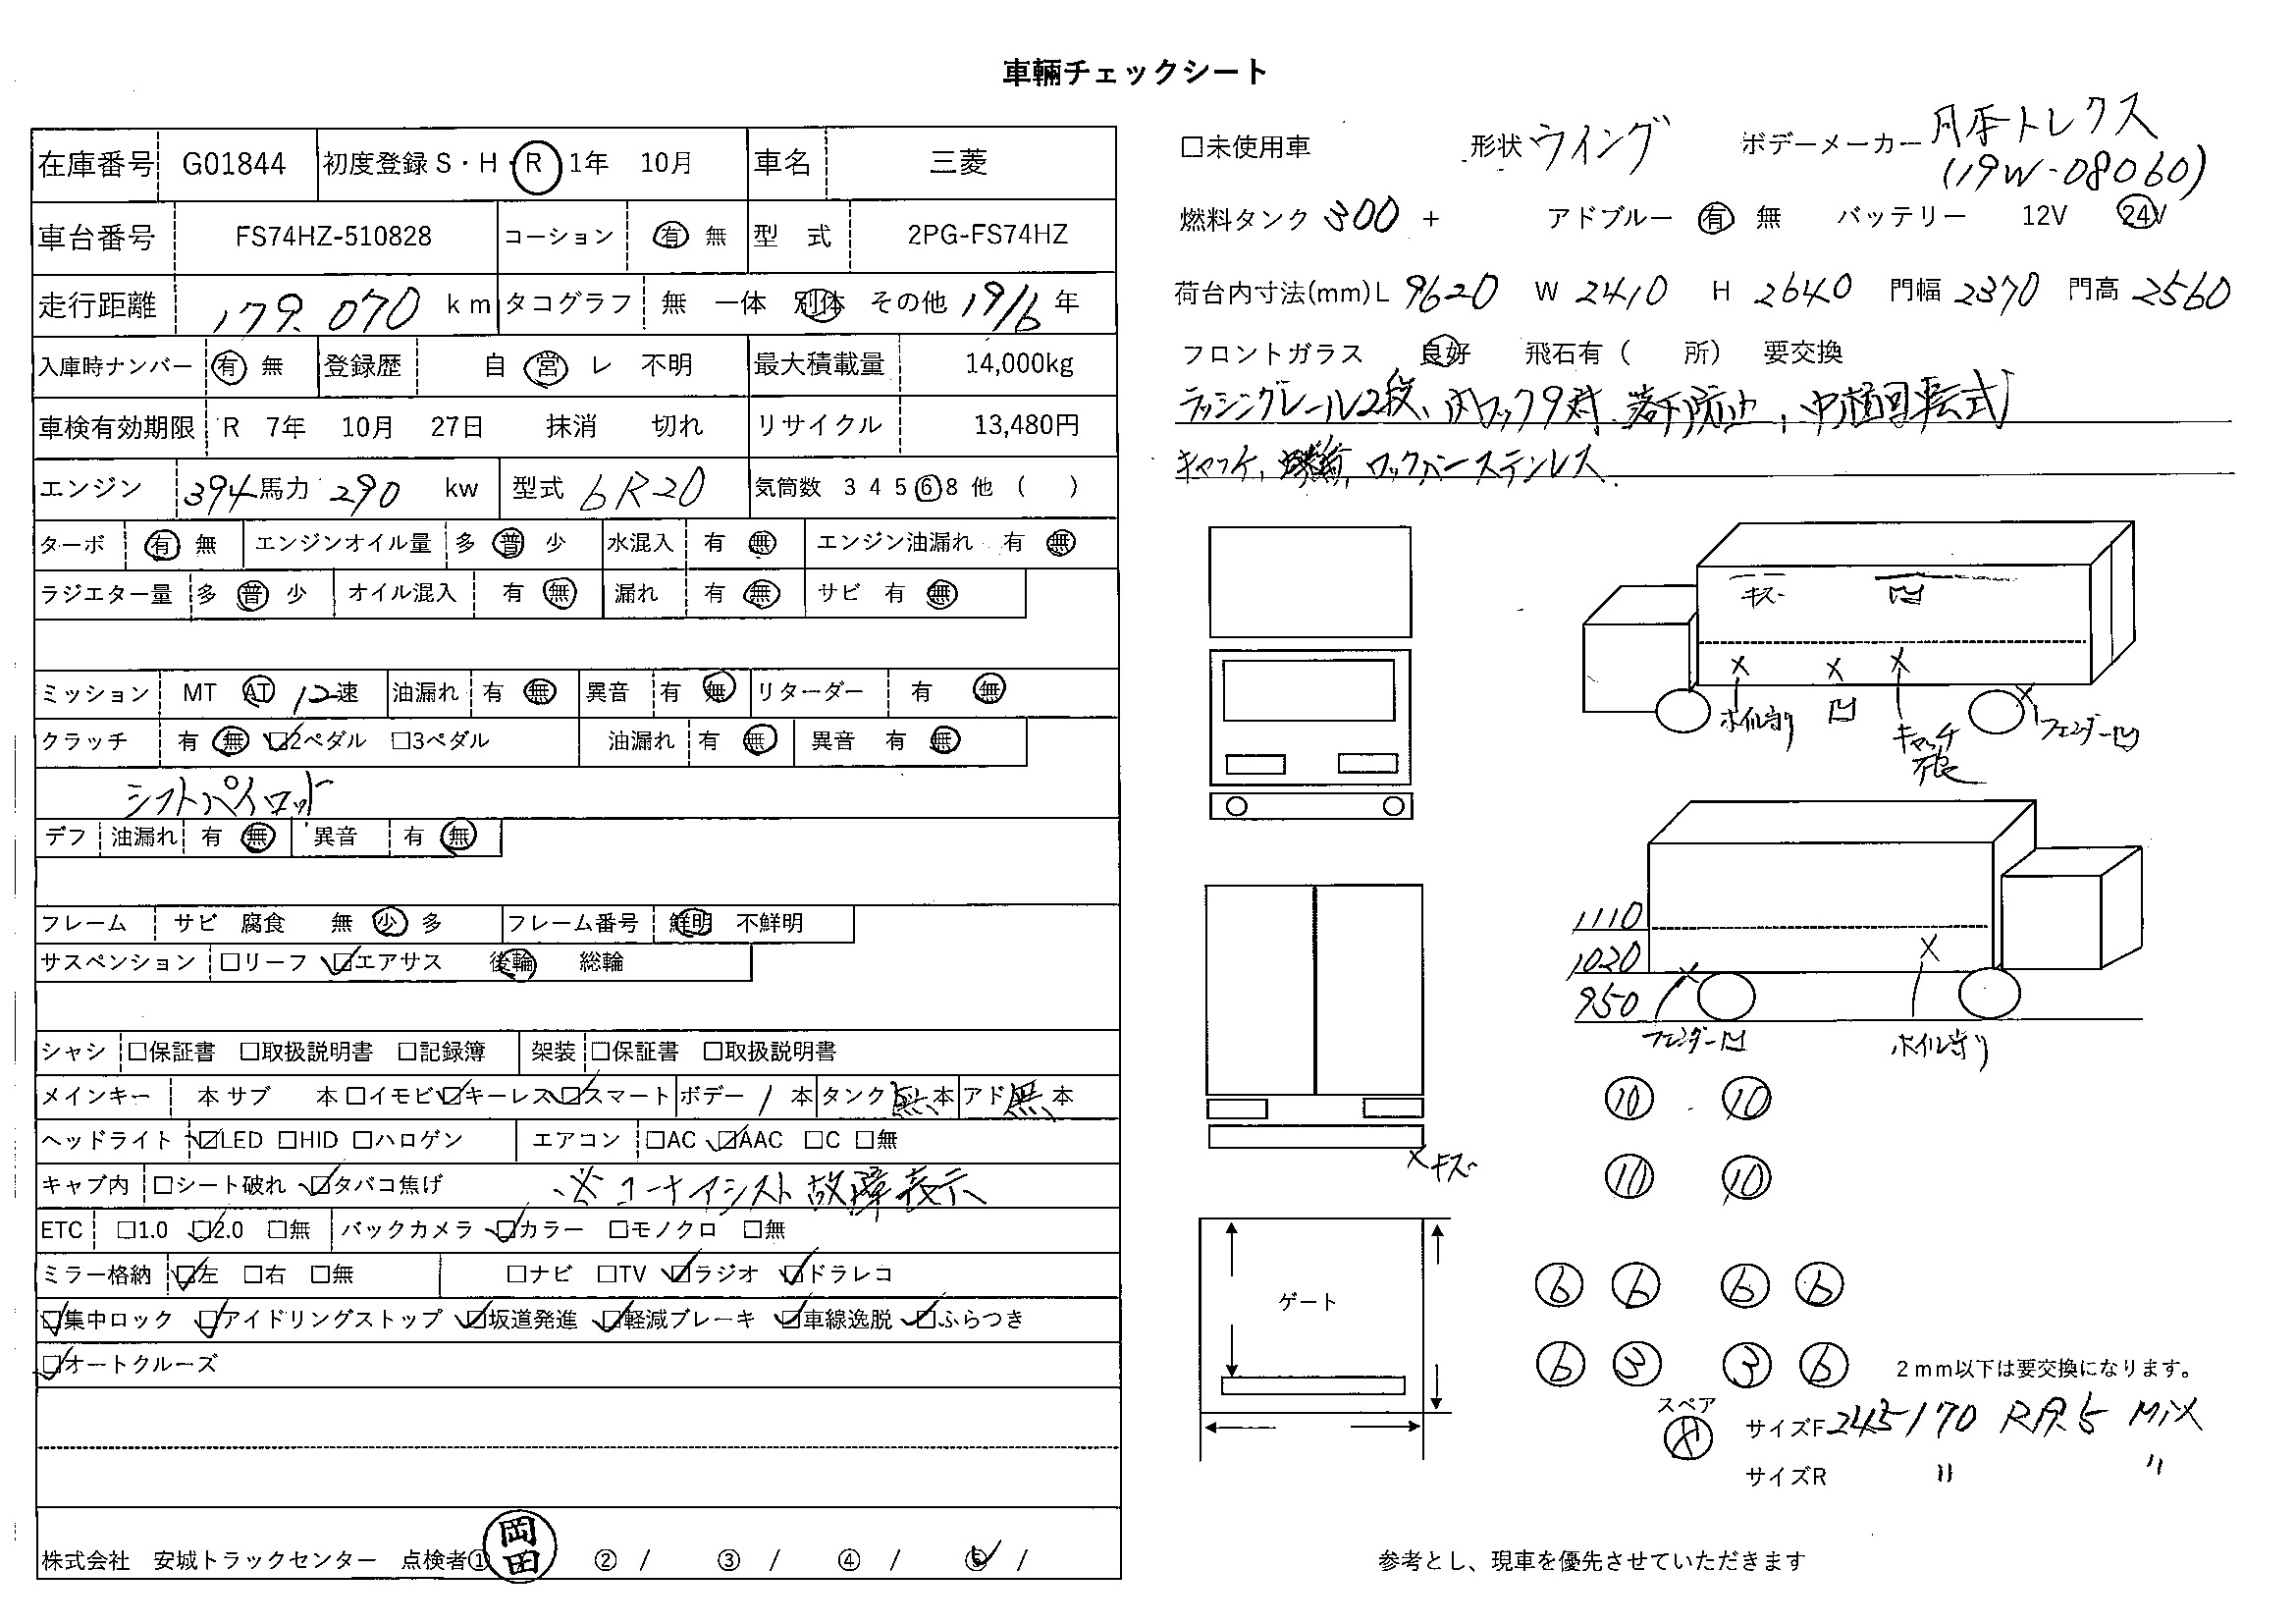 車輛チェックシート
在庫番号 G01844 初度登録 S・H・R 1年 10月 車名 三菱
車台番号 FS74HZ-510828 コーション 有 無 型 式 2PG-FS74HZ
走行距離 179.070 km タコグラフ 無 一体 別体 その他 19/6 年
入庫時ナンバー 有 無 登録歴 自 営 レ 不明 最大積載量 14,000kg
車検有効期限 R 7年 10月 27日 抹消 切れ リサイクル 13,480円
エンジン 394馬力 290 kw 型式 6R20 気筒数 3 4 5 6 8 他 ( )
ターボ 有 無 エンジンオイル量 多 普 少 水混入 有 無 エンジン油漏れ 有 無
ラジエター量 多 普 少 オイル混入 有 無 漏れ 有 無 サビ 有 無
ミッション MT AT 12速 油漏れ 有 無 異音 有 無 リターダー 有 無
クラッチ 有 無 ☑2ペダル □3ペダル 油漏れ 有 無 異音 有 無
シフトパイロット
デフ 油漏れ 有 無 異音 有 無
フレーム サビ 腐食 無 少 多 フレーム番号 鮮明 不鮮明
サスペンション □リーフ ☑エアサス 後輪 総輪
シャシ □保証書 □取扱説明書 □記録簿 架装 □保証書 □取扱説明書
メインキー 本 サブ 本 □イモビ ☑キーレス ☑スマート ボデー 1 本 タンク 無 本 アド 無 本
ヘッドライト ☑LED □HID □ハロゲン エアコン □AC ☑AAC □C □無
キャブ内 □シート破れ ☑タバコ焦げ ※コーナアシスト故障表示
ETC □1.0 ☑2.0 □無 バックカメラ ☑カラー □モノクロ □無
ミラー格納 ☑左 □右 □無 □ナビ □TV ☑ラジオ ☑ドラレコ
☑集中ロック ☑アイドリングストップ ☑坂道発進 ☑軽減ブレーキ ☑車線逸脱 ☑ふらつき
☑オートクルーズ
株式会社 安城トラックセンター 点検者① 岡田 ② / ③ / ④ / ⑤ /
□未使用車 形状 ウイング ボデーメーカー 日本トレクス
(19W-08060)
燃料タンク 300 + アドブルー 有 無 バッテリー 12V 24V
荷台内寸法(mm)L 9620 W 2410 H 2640 門幅 2370 門高 2560
フロントガラス 良好 飛石有 ( 所) 要交換
ラッシングレール2段、内フック9対、落下防止、中柱回転式
キャッチ, ロックバーステンレス.
キズ 凹
ホイル守り 凹 キャッチ フェンダー凹
1110
1020
950
フェンダー凹 ホイル守り
10 10
キズ
10 10
ゲート
6 6 6 6
6 3 3 6
2mm以下は要交換になります。
スペア
サイズF 245/70 R19.5 MIX
サイズR 〃 〃
参考とし、現車を優先させていただきます